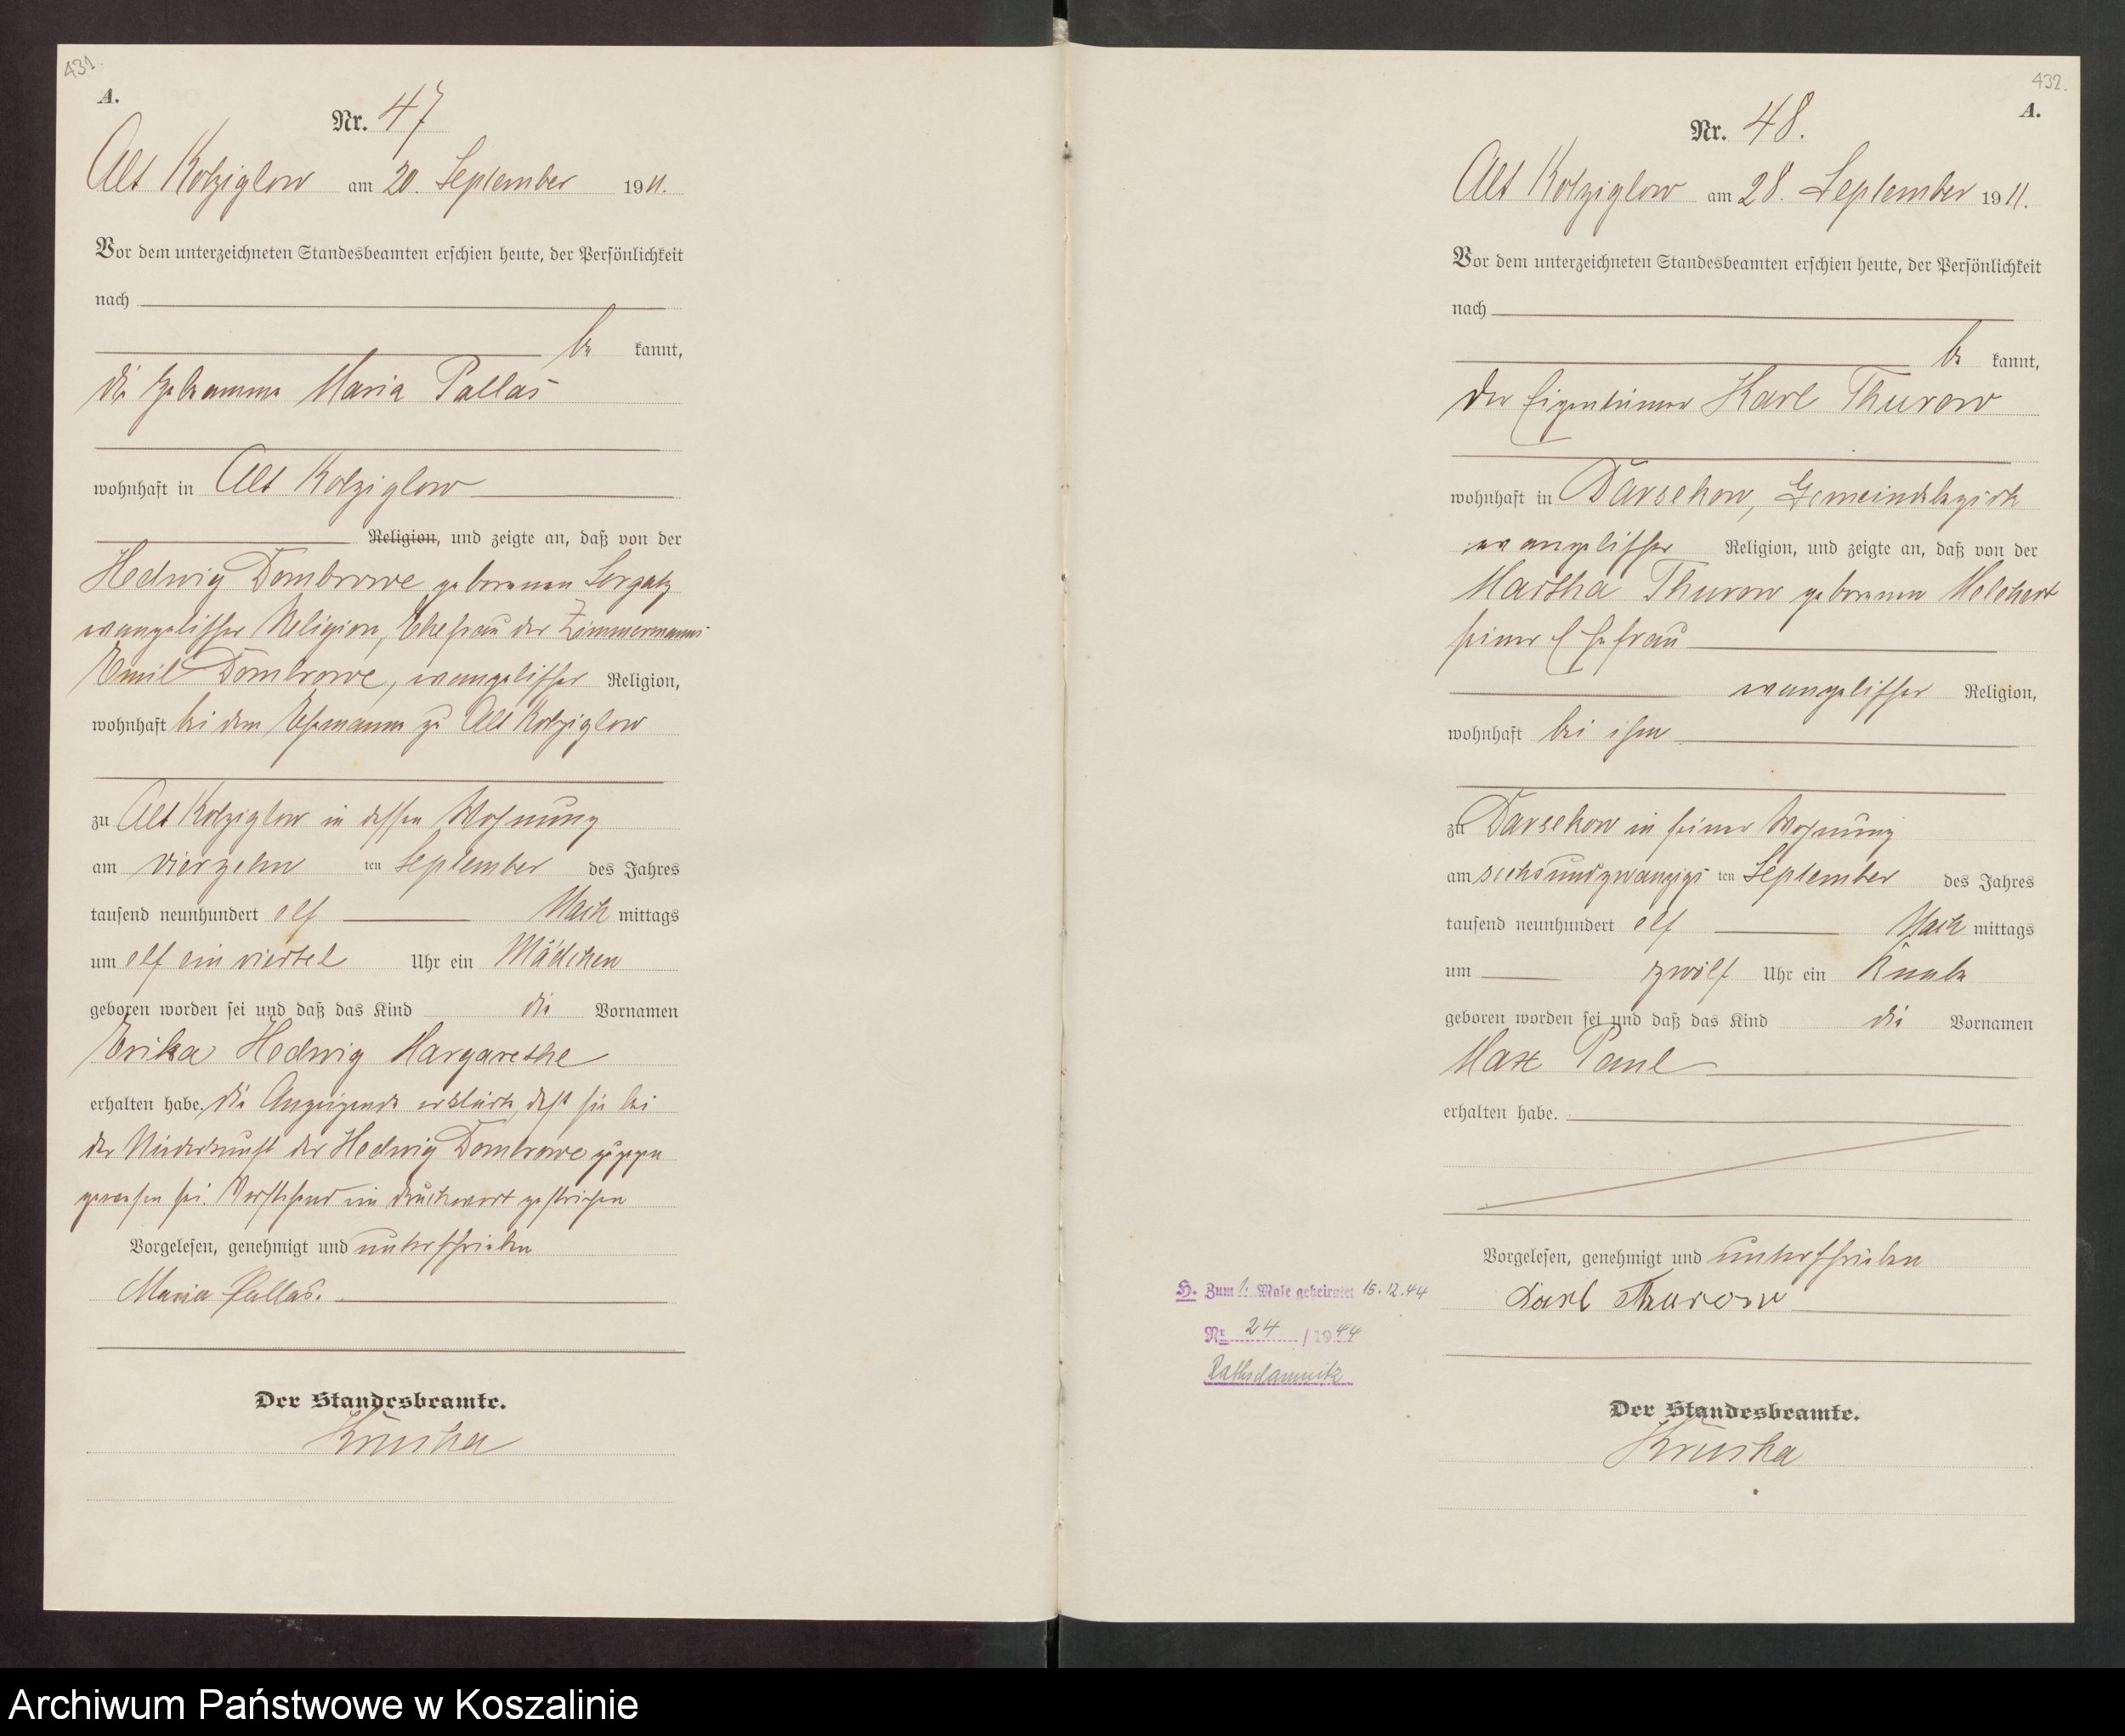 431.
A.
Nr. 47
Alt Kolziglow am 20. September 1911.
Vor dem unterzeichneten Standesbeamten erschien heute, der Persönlichkeit
nach
be kannt,
die Hebamme Maria Pallas
wohnhaft in Alt Kolziglow
Religion, und zeigte an, daß von der
Hedwig Dombrowe geborenen Sergatz
evangelischer Religion, Ehefrau des Zimmermanns
Emil Dombrowe, evangelischer Religion,
wohnhaft bei dem Ehemann zu Alt Kolziglow
zu Alt Kolziglow in dessen Wohnung
am vierzehn ten September des Jahres
tausend neunhundert elf Nach mittags
um elf ein viertel Uhr ein Mädchen
geboren worden sei und daß das Kind die Vornamen
Erika Hedwig Margarethe
erhalten habe. die Anzeigende erklärte, daß sie bei
der Niederkunft der Hedwig Dombrowe zugegen
gewesen sei. Vorstehend ein Druckwort gestrichen
Vorgelesen, genehmigt und unterschrieben
Maria Pallas.
Der Standesbeamte.
Kruska
432.
A.
Nr. 48.
Alt Kolziglow am 28. September 1911.
Vor dem unterzeichneten Standesbeamten erschien heute, der Persönlichkeit
nach
be kannt,
der Eigentümer Karl Thurow
wohnhaft in Darsekow, Gemeindebezirk
evangelischer Religion, und zeigte an, daß von der
Martha Thurow geborenen Melchert
seiner Ehefrau
evangelischer Religion,
wohnhaft bei ihm
zu Darsekow in seiner Wohnung
am sechsundzwanzigs ten September des Jahres
tausend neunhundert elf Nach mittags
um zwölf Uhr ein Knabe
geboren worden sei und daß das Kind die Vornamen
Max Paul
erhalten habe.
Vorgelesen, genehmigt und unterschrieben
Karl Thurow
H. Zum 1. Male geheiratet 15.12.44
Nr 24 / 1944
Rathsdamnitz
Der Standesbeamte.
Kruska
Archiwum Państwowe w Koszalinie